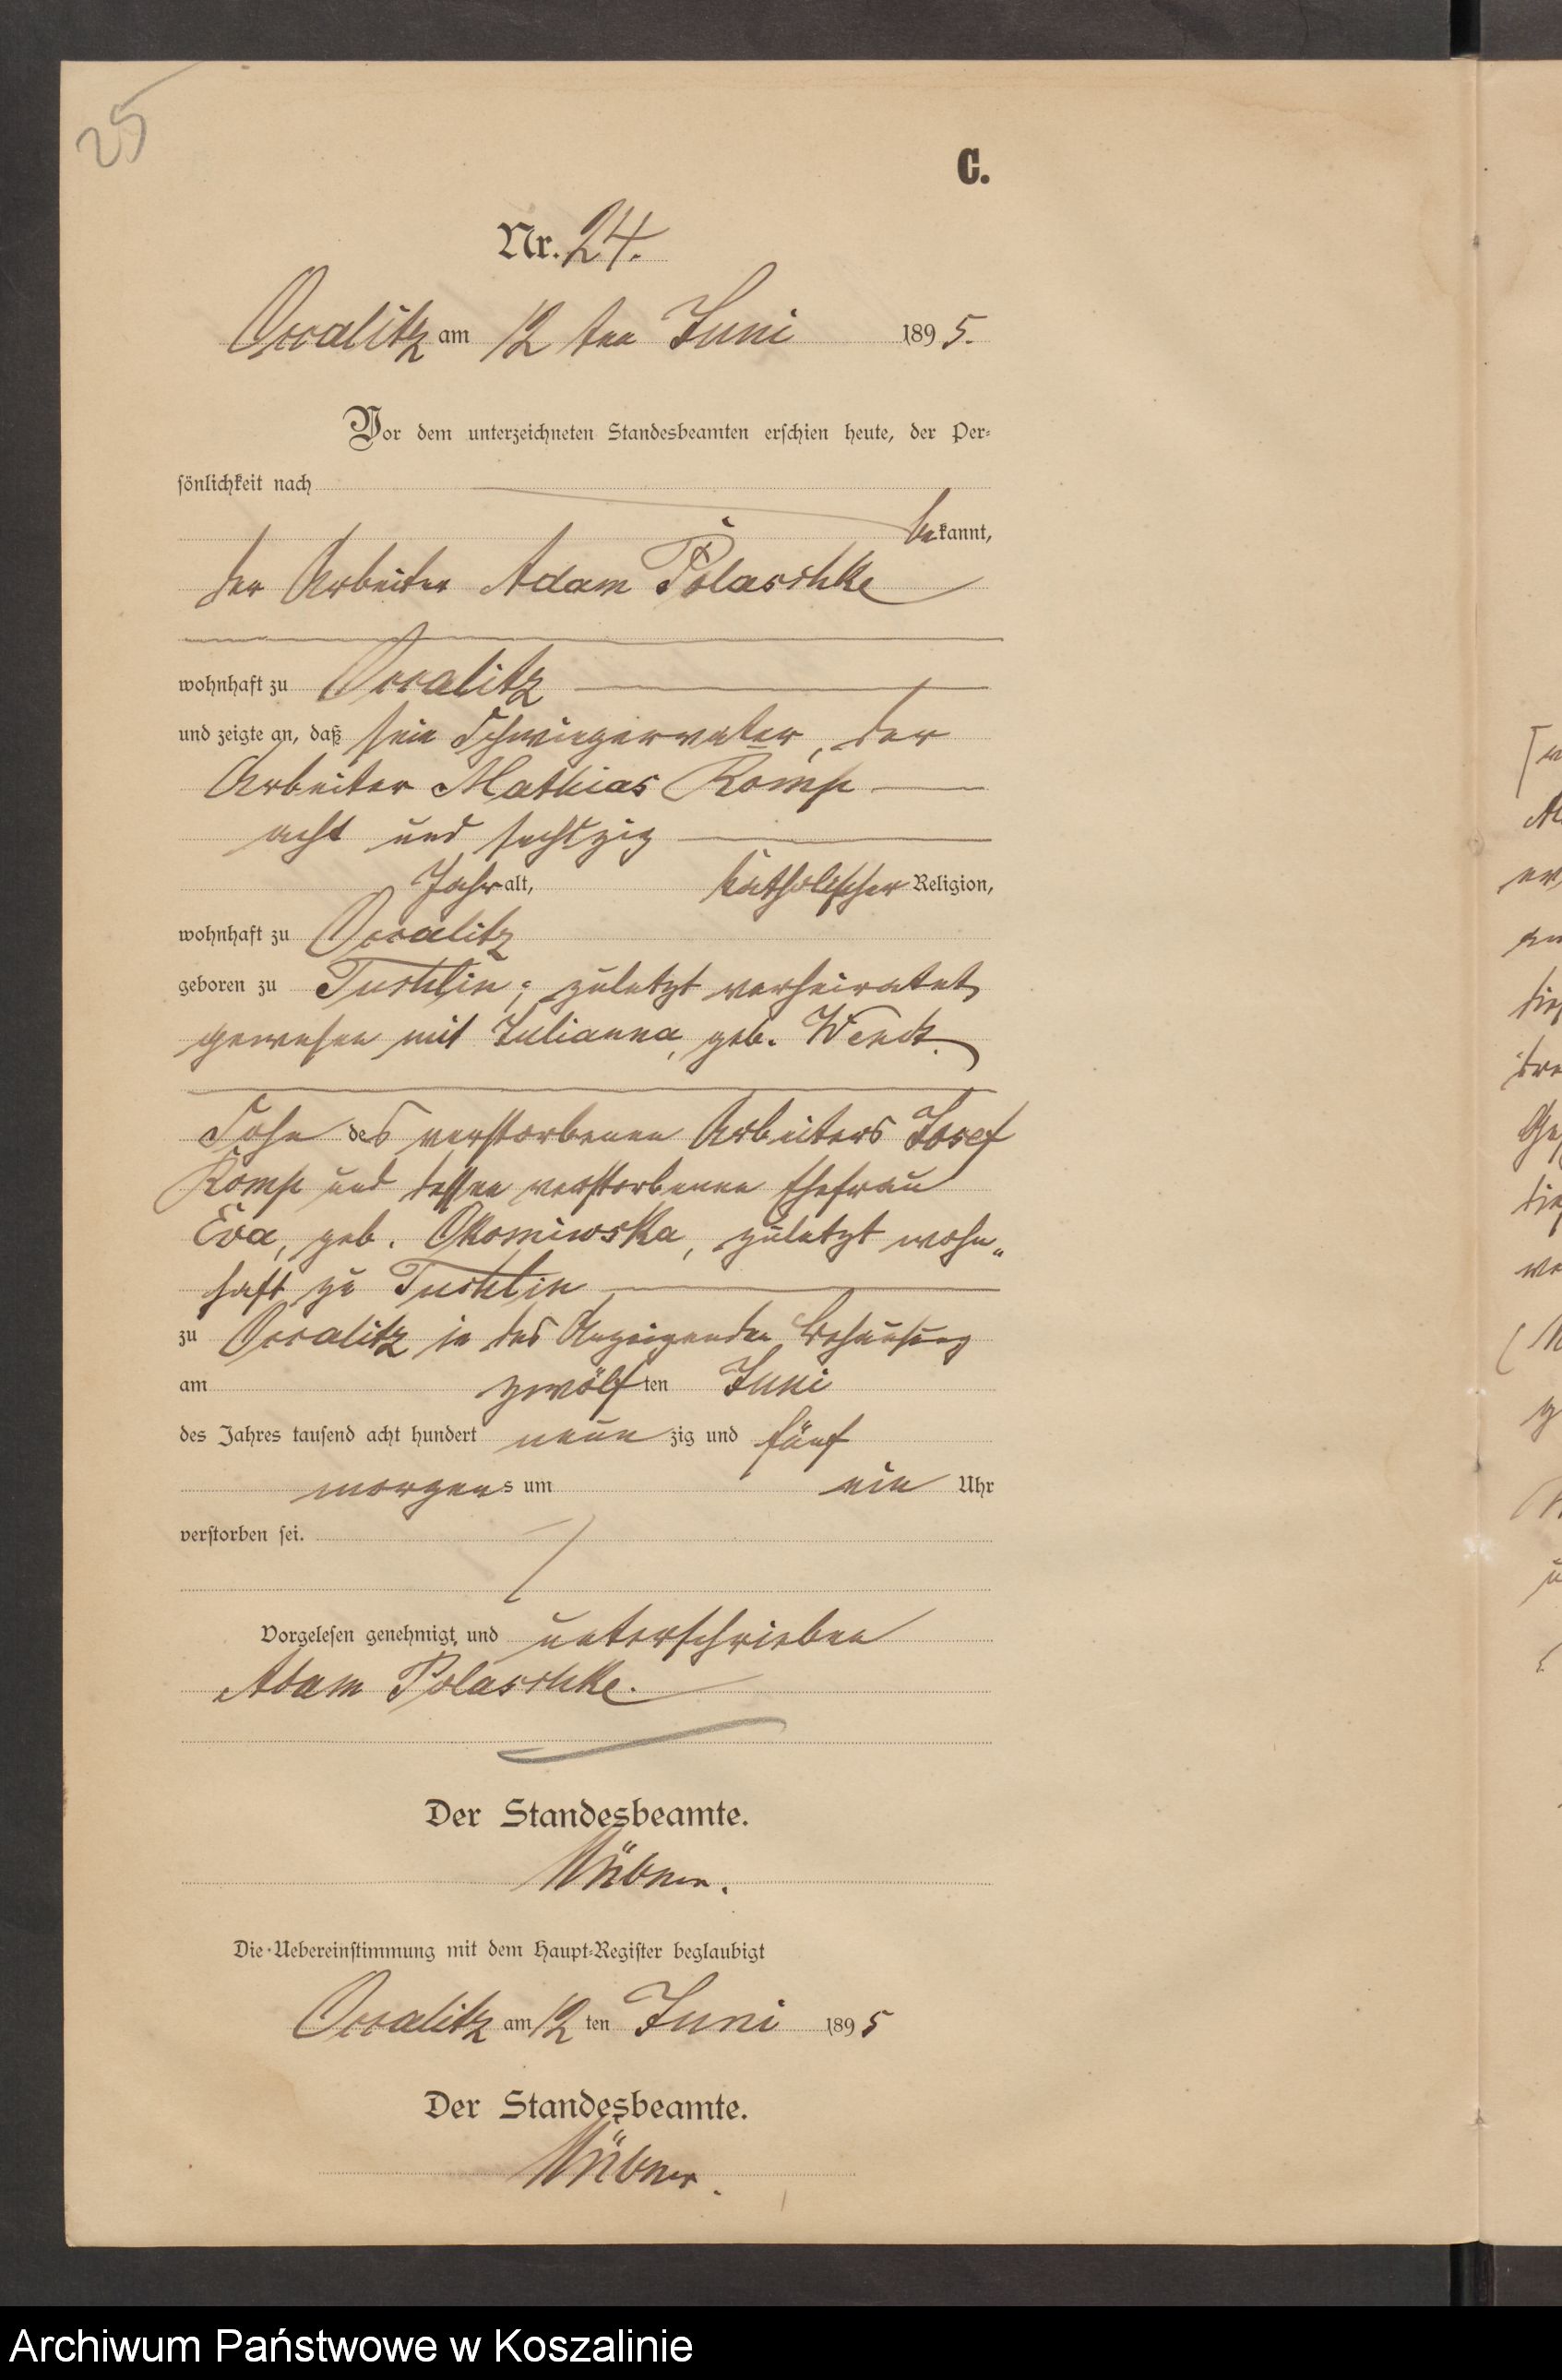 25
C.
Nr. 24.
Ossalitz am 12 ten Juni 1895.
Vor dem unterzeichneten Standesbeamten erschien heute, der Per-
sönlichkeit nach
bekannt,
der Arbeiter Adam Polaschke
wohnhaft zu Ossalitz
und zeigte an, daß sein Schwiegervater, der
Arbeiter Mathias Romp
acht und sechszig
Jahr alt, katholischer Religion,
wohnhaft zu Ossalitz
geboren zu Tuchlin; zuletzt verheiratet
gewesen mit Julianna, geb. Wenck.
Sohn des verstorbenen Arbeiters Josef
Romp und dessen verstorbenen Ehefrau
Eva, geb. zuletzt wohn„
haft zu Tuchlin
zu Ossalitz in des Anzeigenden Behausung
am zwölf ten Juni
des Jahres tausend acht hundert neun zig und fünf
morgens um ein Uhr
verstorben sei.
Vorgelesen genehmigt und unterschrieben
Adam Polaschke.
Der Standesbeamte.
Die Uebereinstimmung mit dem Haupt-Register beglaubigt
Ossalitz am 12 ten Juni 1895
Der Standesbeamte.
Archiwum Państwowe w Koszalinie